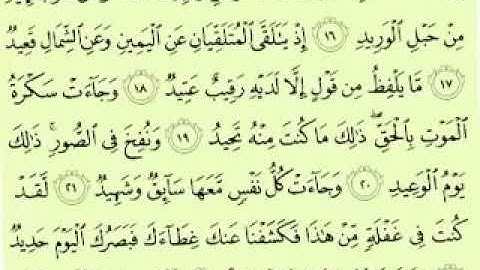 مِنْ حَبْلِ ٱلْوَرِيدِ ١٦ إِذْ يَتَلَقَّى ٱلْمُتَلَقِّيَانِ عَنِ ٱلْيَمِينِ وَعَنِ ٱلشِّمَالِ قَعِيدٌ
١٧ مَّا يَلْفِظُ مِن قَوْلٍ إِلَّا لَدَيْهِ رَقِيبٌ عَتِيدٌ ١٨ وَجَآءَتْ سَكْرَةُ
ٱلْمَوْتِ بِٱلْحَقِّ ۖ ذَٰلِكَ مَا كُنتَ مِنْهُ تَحِيدُ ١٩ وَنُفِخَ فِي ٱلصُّورِ ۚ ذَٰلِكَ
يَوْمُ ٱلْوَعِيدِ ٢٠ وَجَآءَتْ كُلُّ نَفْسٍ مَّعَهَا سَآئِقٌ وَشَهِيدٌ ٢١ لَّقَدْ
كُنتَ فِي غَفْلَةٍ مِّنْ هَٰذَا فَكَشَفْنَا عَنكَ غِطَآءَكَ فَبَصَرُكَ ٱلْيَوْمَ حَدِيدٌ